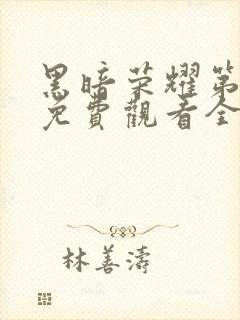 黑暗荣耀第
免費觀看全
林善濤